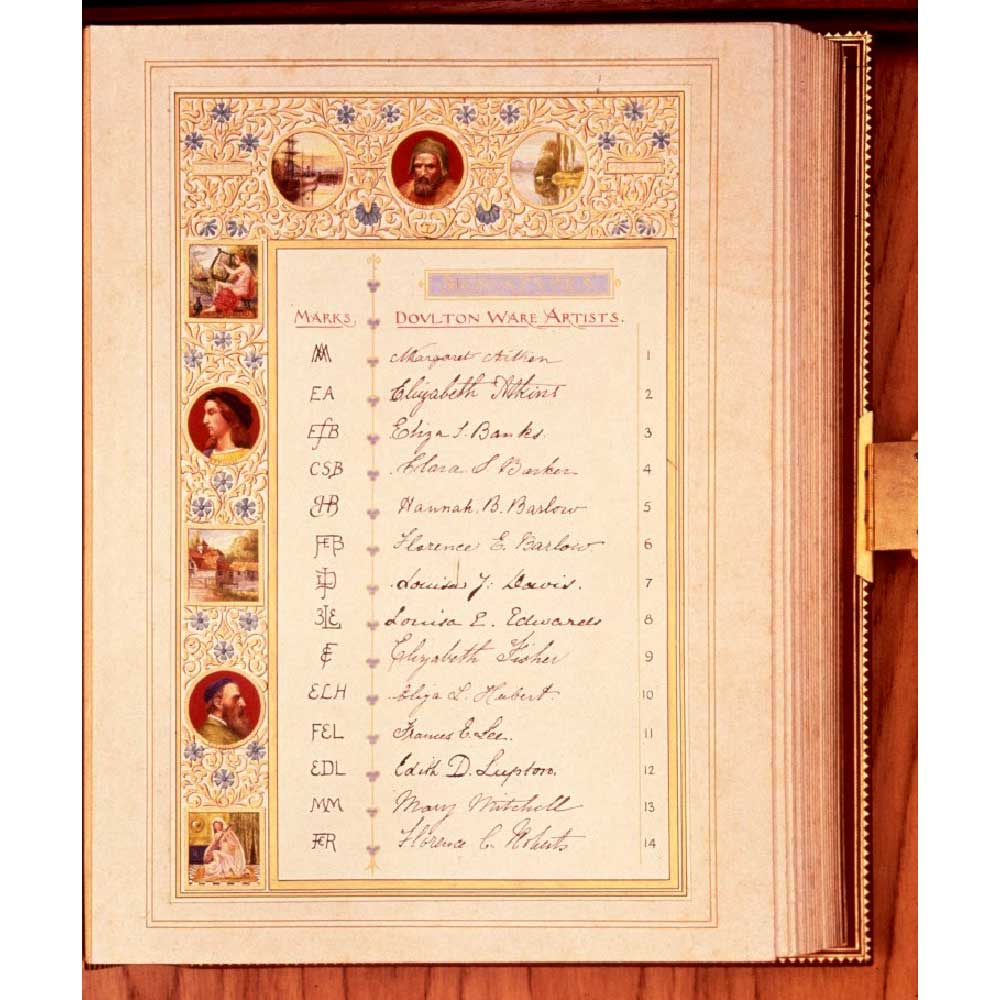 MARKS. DOVLTON WARE ARTISTS.
AM Margaret Aitken 1
EA Elizabeth Atkins 2
EJB Eliza S. Banks. 3
CSB Clara S Barker 4
BHB Hannah. B. Barlow 5
FEB Florence E. Barlow 6
LJD Louisa J. Davis. 7
LE Louisa E. Edwards 8
EF Elizabeth Fisher 9
ELH Eliza L. Hubert. 10
FEL Frances E. Lee. 11
EDL Edith D. Lupton. 12
MM Mary Mitchell 13
FER Florence C. Roberts 14